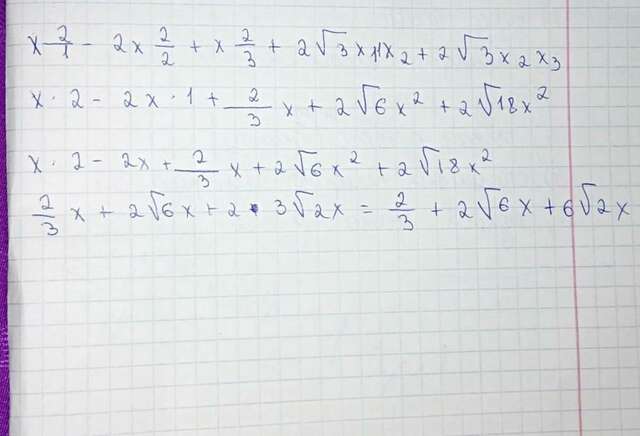 x 2/1 - 2x 2/2 + x 2/3 + 2√3 x 11x₂ + 2√3x₂x₃
x · 2 - 2x · 1 + 2/3 x + 2√6x² + 2√18x²
x · 2 - 2x + 2/3 x + 2√6x² + 2√18x²
2/3 x + 2√6x + 2 · 3√2x = 2/3 + 2√6x + 6√2x